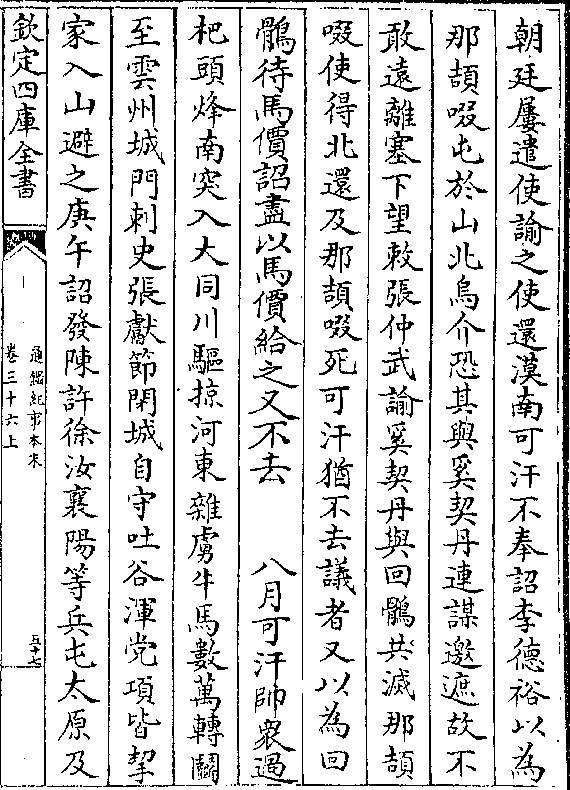 朝廷屢遣使諭之使還漠南可汗不奉詔李德裕以為
那頡啜屯於山北烏介恐其與奚契丹連謀邀遮故不
敢遠離塞下望敕張仲武諭奚契丹與回鶻共滅那頡
啜使得北還及那頡啜死可汗猶不去議者又以為回
鶻待馬價詔盡以馬價給之又不去　八月可汗帥衆過
杷頭烽南突入大同川驅掠河東雜虜牛馬數萬轉鬭
至雲州城門刺史張獻節閉城自守吐谷渾党項皆挈
家入山避之庚午詔發陳許徐汝襄陽等兵屯太原及
欽定四庫全書
通鑑紀事本末
卷三十六上
五十七